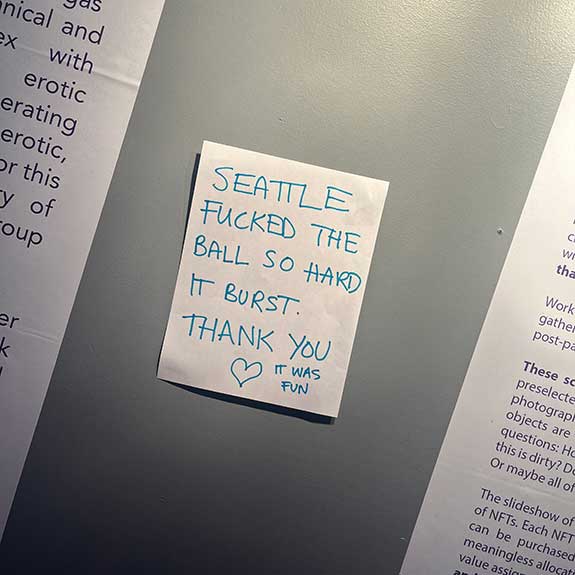 gas
nical and
ex with
erotic
erating
erotic,
or this
ry of
roup
er
SEATTLE
FUCKED THE
BALL SO HARD
IT BURST.
THANK YOU
♡ IT WAS
FUN
tha
Work
gather
post-pa
These sc
preselecte
photograp
objects are
questions: Ho
this is dirty? Do
Or maybe all of
The slideshow of
of NFTs. Each NFT
can be purchased
meaningless allocat
value assign